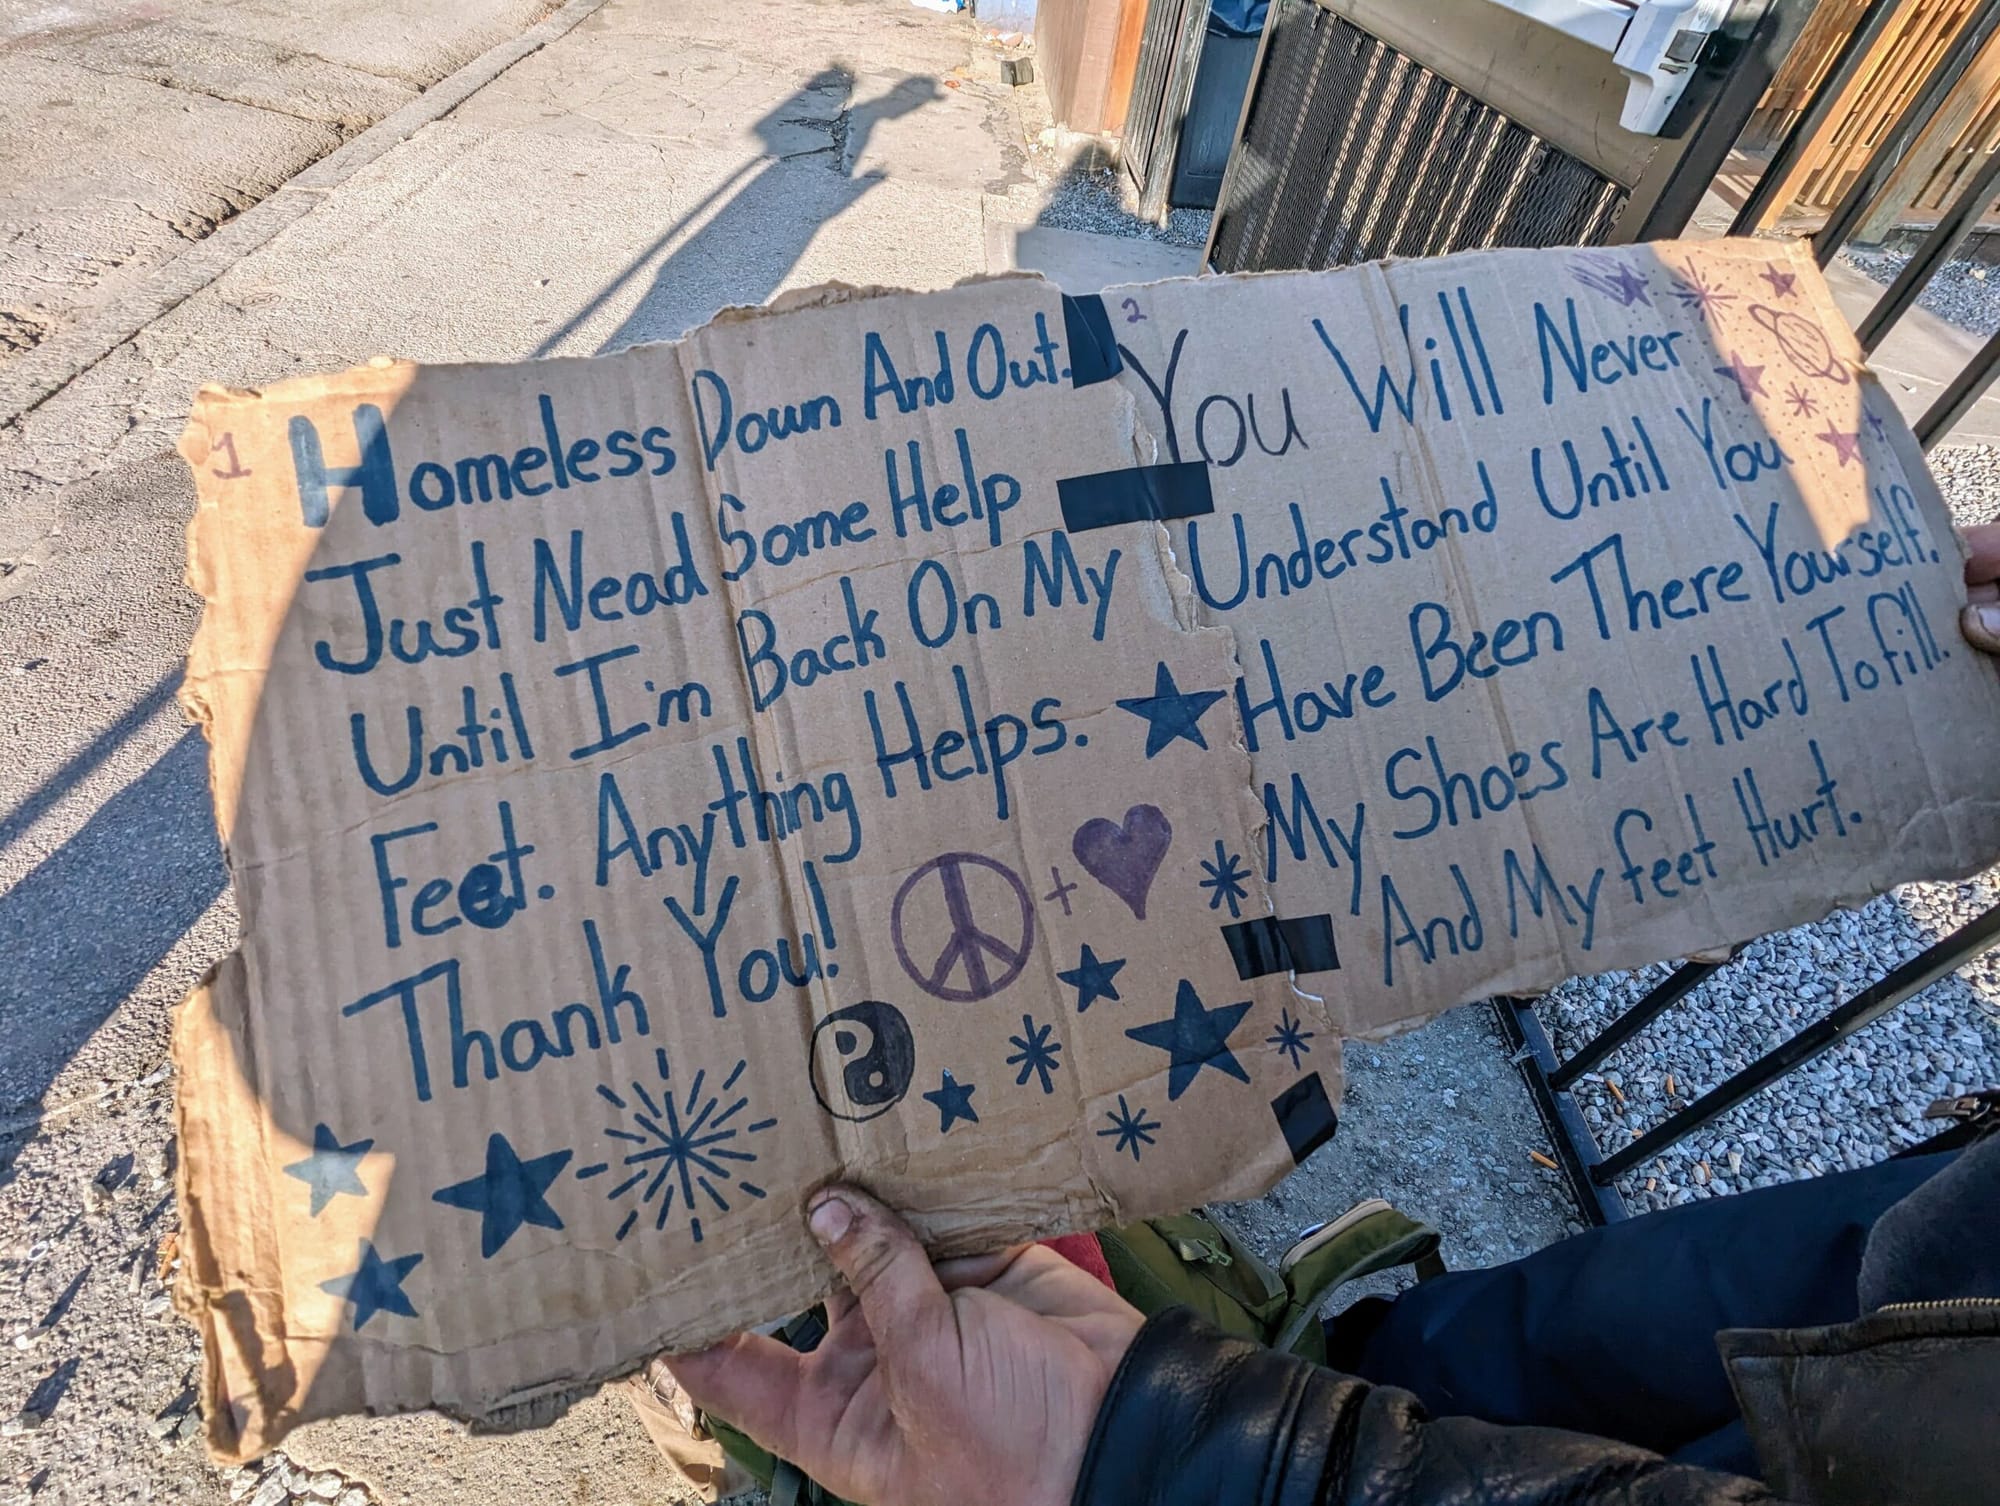 1
Homeless Down And Out.
Just Nead Some Help
Until I'm Back On My
Feet. Anything Helps.
Thank You!
2
You Will Never
Understand Until You
Have Been There Yourself.
My Shoes Are Hard To fill.
And My feet Hurt.